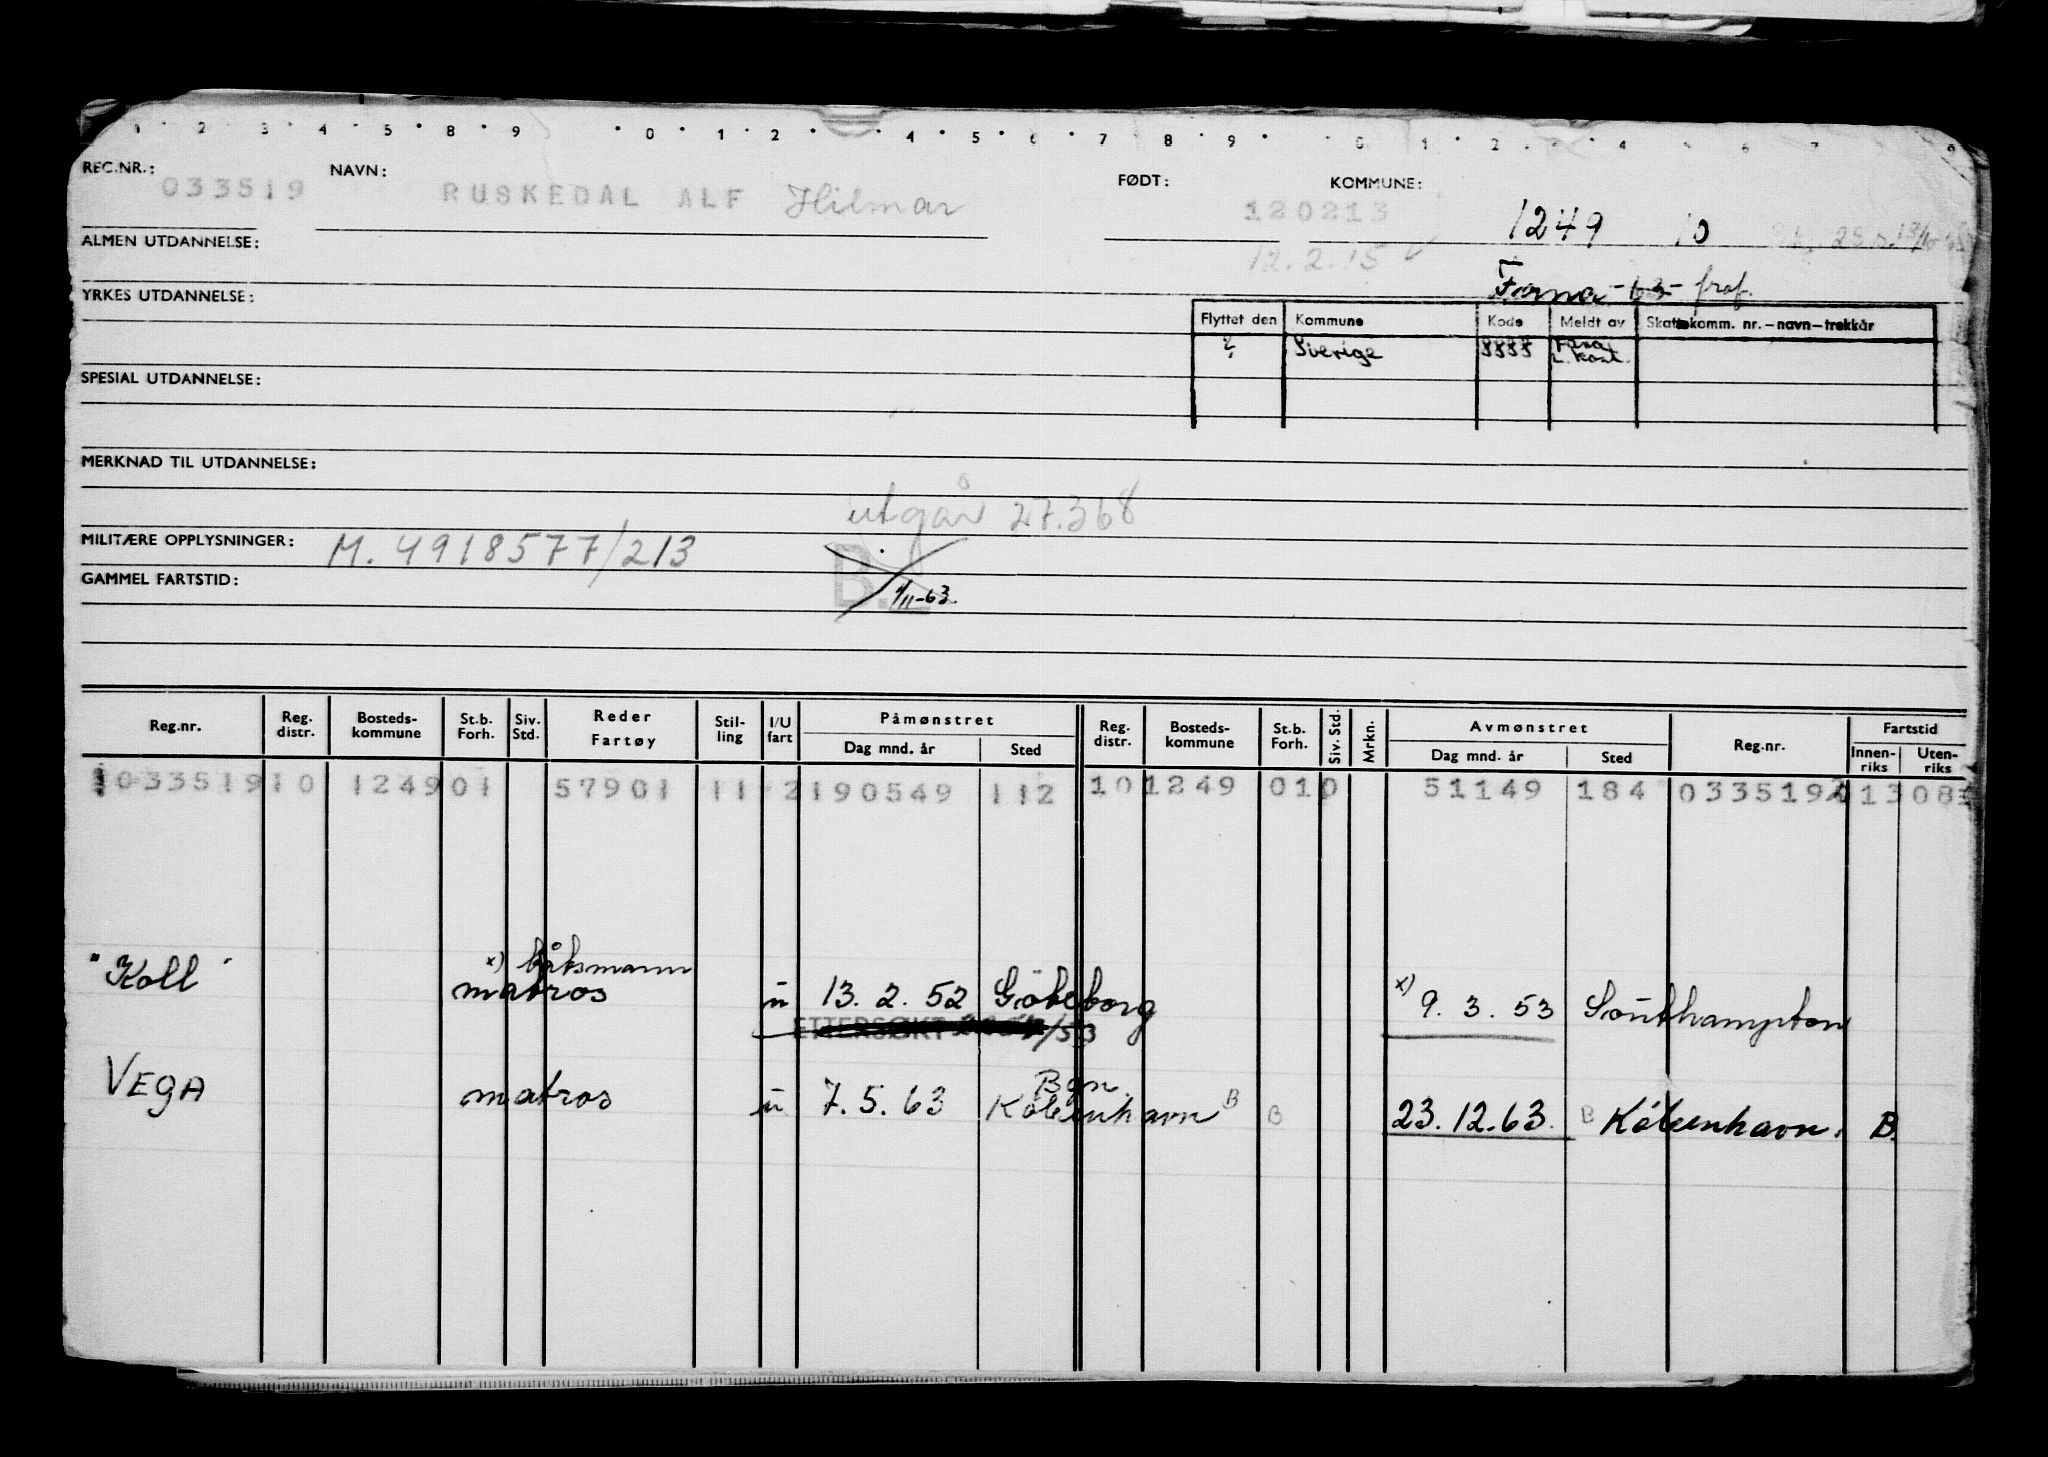 1 2 3 4 5 8 9 0 1 2 4 5 6 7 8 9 0 1 2 4 6 7 9
REG.NR.: 033519 NAVN: RUSKEDAL ALF Hilmar FØDT: 120213 KOMMUNE: 1249 10
12.2.15 ✓
ALMEN UTDANNELSE:
Fana -63- fraf.
YRKES UTDANNELSE:
Flyttet den Kommune Kode Meldt av Skattekomm. nr.-navn-trekkår
? Sverige 8888 Fana L. kont.
SPESIAL UTDANNELSE:
MERKNAD TIL UTDANNELSE:
utgår 27.368
MILITÆRE OPPLYSNINGER: M. 4918577/213
GAMMEL FARTSTID: B. 1/11-63.
Reg.nr. Reg. distr. Bosteds- kommune St.b. Forh. Siv. Std. Reder Fartøy Stil- ling I/U fart Påmønstret Dag mnd. år Sted Reg. distr. Bosteds- kommune St.b. Forh. Siv. Std. Mrkn. Avmønstret Dag mnd. år Sted Reg.nr. Fartstid Innen- riks Uten- riks
033519 10 1249 01 57901 11 2 190549 112 10 1249 01 0 51149 184 033519 13 08
x) båtsmann
"Koll" matros u 13. 2. 52 Göteborg x) 9. 3. 53 Southampton
ETTERSØKT /53
Bgn.
VEGA matros u 7. 5. 63 København B B 23. 12. 63. B København. B.